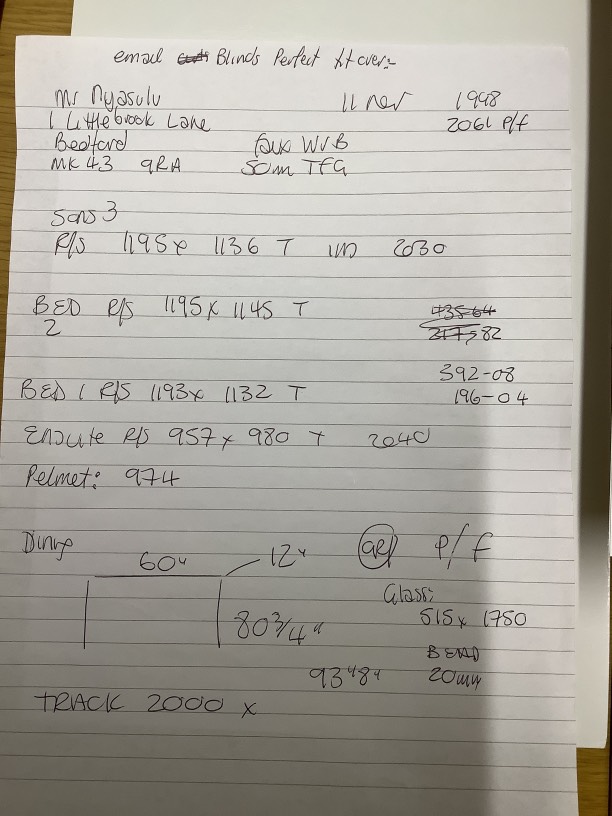 email Blinds Perfect fit over:-
Mr Nyasulu 11 nov 1998
1 Littlebrook Lane 2061 P/f
Bedford faux WVB
MK43 9RA 50m TFG
Sons 3
R/S 1195 x 1136 T 2030
BED R/S 1195 x 1145 T 435-64
2 217,82
392-08
BED 1 R/S 1193 x 1132 T 196-04
Ensuite R/S 957 x 980 T 2040
Pelmet: 974
Dining 60" 12" P/f
Glass:
80 3/4" 515 x 1750
BEAD
93" 84" 20mm
TRACK 2000 x